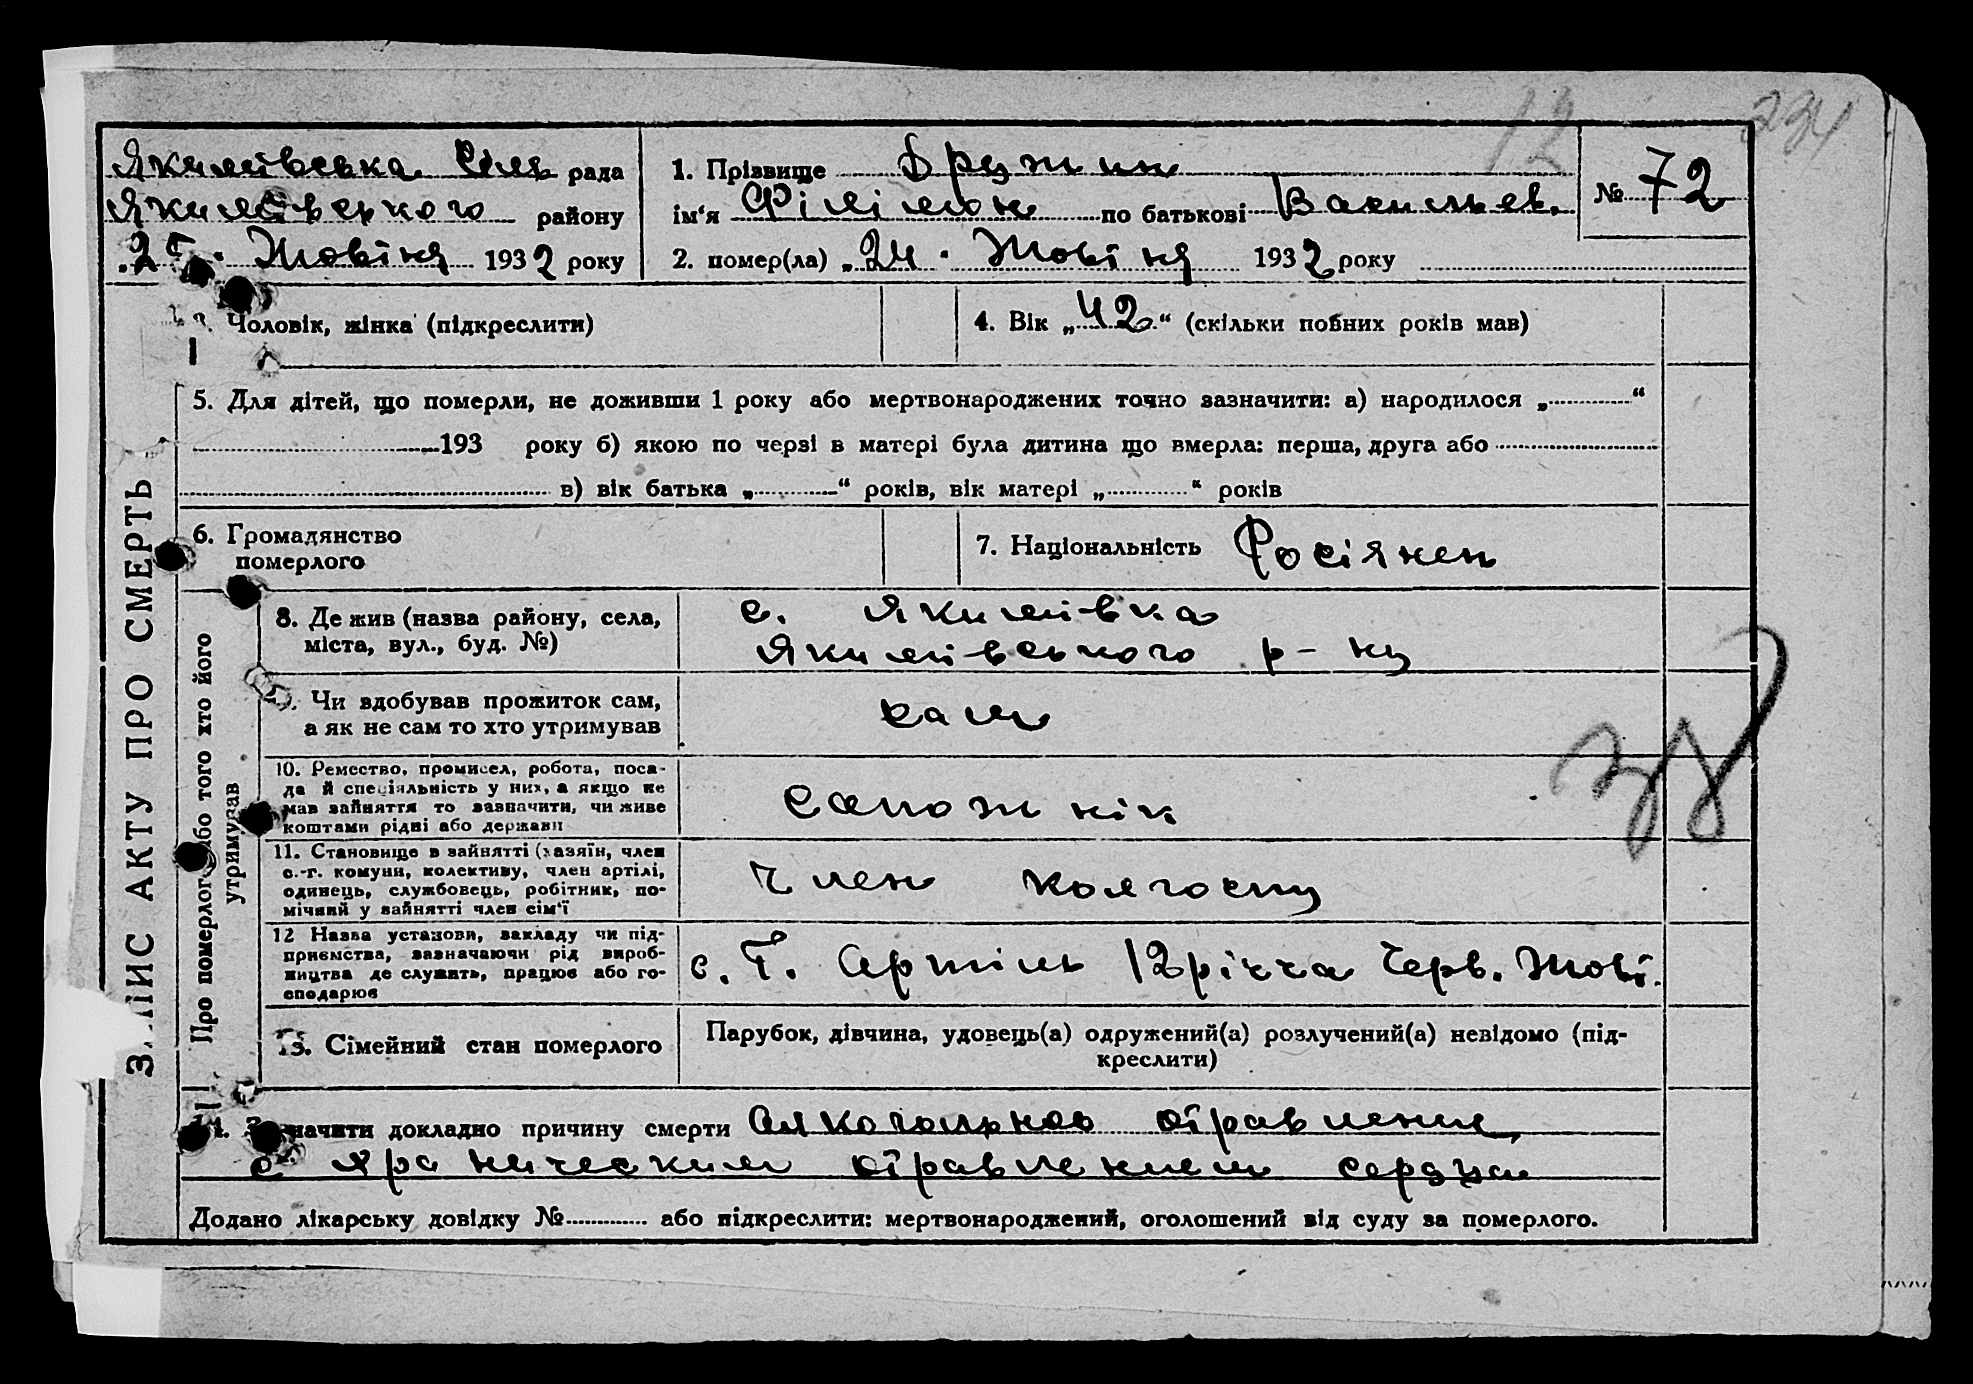 12 234
Якимівська Сіль рада
Якимівського району
25. Жовтня 1932 року
1. Прізвище Дружин
ім'я Філімон по батькові Васильев.
№ 72
2. помер(ла) „24. Жовтня 1932 року
3. Чоловік, жінка (підкреслити)
4. Вік „42“ (скільки повних років мав)
5. Для дітей, що померли, не доживши 1 року або мертвонароджених точно зазначити: а) народилося „............“
............193 року б) якою по черзі в матері була дитина що вмерла: перша, друга або............
............ в) вік батька „............“ років, вік матері „............“ років
6. Громадянство
померлого
7. Національність Росіянен
ЗАПИС АКТУ ПРО СМЕРТЬ
Про померлого або того хто його
утримував
8. Де жив (назва району, села,
міста, вул., буд. №)
с. Якимівка
Якимівського р-ну
9. Чи здобував прожиток сам,
а як не сам то хто утримував
сам
10. Ремество, промисел, робота, поса-
да й спеціяльність у них, а якщо не
мав зайняття то зазначити, чи живе
коштами рідні або держави
Сапожнік
11. Становище в зайнятті (хазяїн, член
с.-г. комуни, колективу, член артілі,
одинець, службовець, робітник, по-
мічний у зайнятті член сім'ї
Член колгоспу
12 Назва установи, закладу чи під-
приємства, зазначаючи рід вироб-
ництва де служить, працює або го-
сподарює
с. г. Артіль 12річча Черв. Жовт.
13. Сімейний стан померлого
Парубок, дівчина, удовець(а) одружений(а) розлучений(а) невідомо (під-
креслити)
14. Зазначити докладно причину смерти Алкогольное отравление
отравлением сердца
Додано лікарську довідку №............ або підкреслити: мертвонароджений, оголошений від суду за померлого.